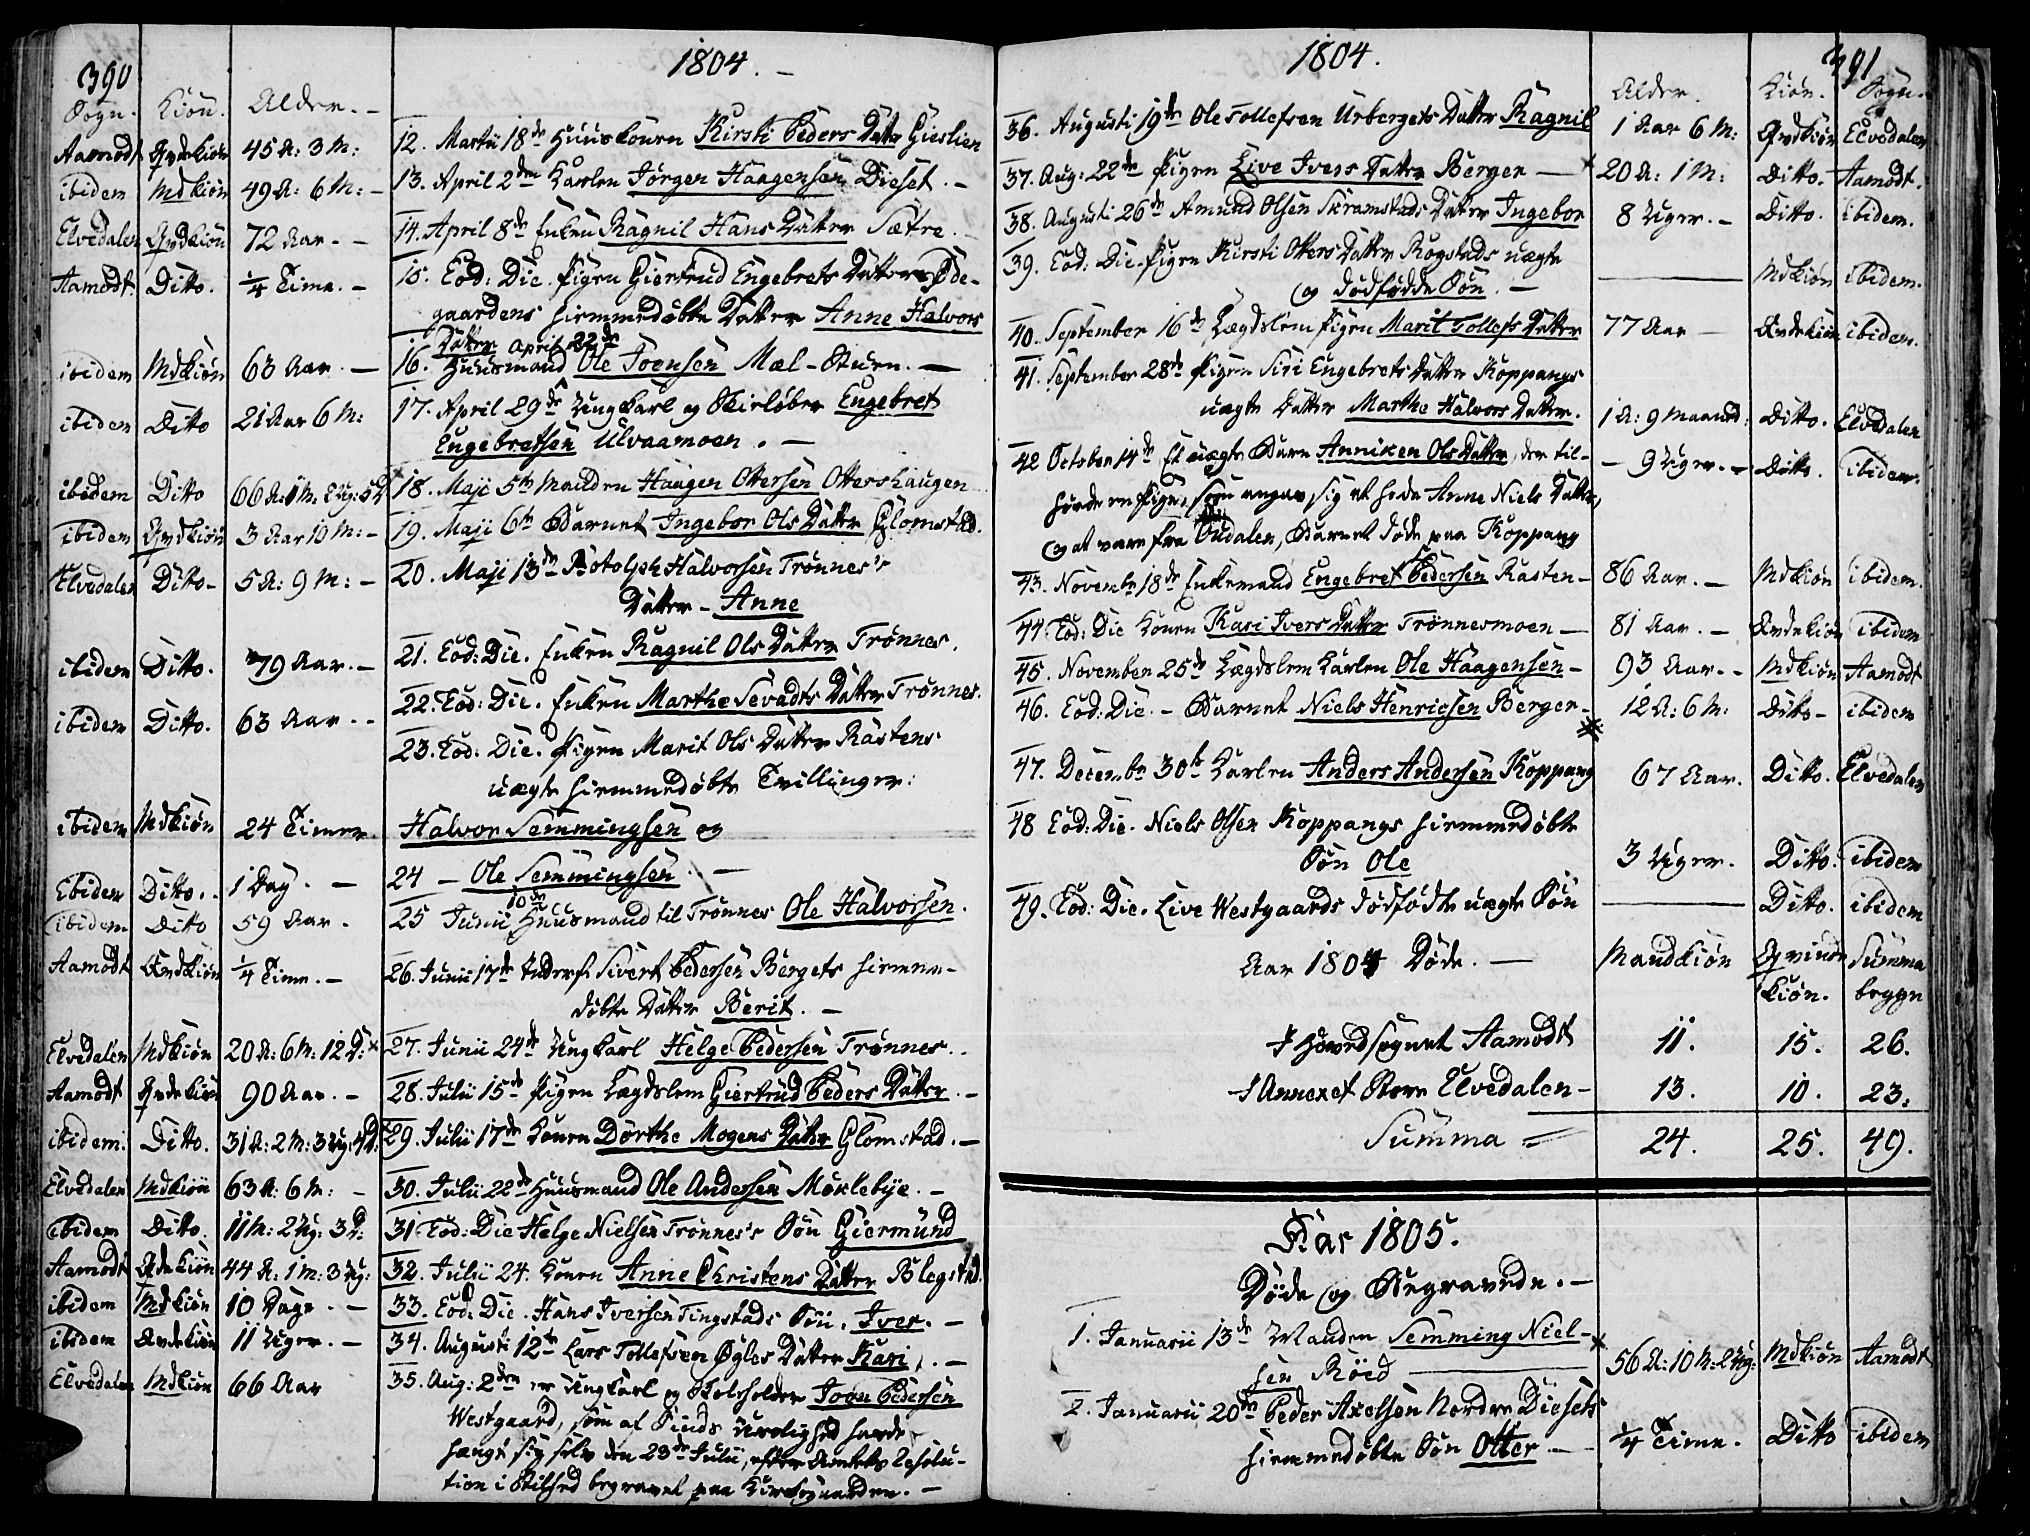 390
1804. -
Sogn. Kiön. Alder. -
Aamodt Qvdekiön 45 A: 3 M: 12. Martii 18de Huuskonen Kirsti Peders Datter Gieslien
ibidem Mdkiön 49 A: 6 M: - 13. April 2den Karlen Jörgen Haagensen Dieset. -
Elvedalen Qvdkiön 72 Aar. - 14. April 8de Enken Ragnil Hans Datter Sætre. -
Aamodt. Ditto. 1/4 Time. - 15. Eod: Die. Pigen Giertrud Engebrets Datter Öde-
gaardens hiemmedöbte Datter Anne Halvors
Datter April 22de
ibidem Mdkiön 63 Aar. - 16. Huusmand Ole Joensen Mæl-Stuen. -
ibidem Ditto 21 Aar 6 M: 17. April 29de Ungkarl og Skielöber Engebret
Engebretsen Ulvaamoen. -
ibidem Ditto 66 A: 1 M: 2 Ug: 5 D 18. Maji 5te Manden Haagen Ottersen Ottershaugen
ibidem Qvdkiön 3 Aar 10 M: - 19. Maji 6te Barnet Ingebor Ols Datter Glomstad.
Elvedalen Ditto - 5 A: 9 M: - 20. Maji 13de Botolph Halvorsen Trönnes's
Datter - Anne
ibidem Ditto. 79 Aar. - 21. Eod: Die. Enken Ragnil Ols Datter Trönnes.
ibidem Ditto. 63 Aar. - 22. Eod: Die. Enken Marthe Sevadts Datter Trönnes.
23. Eod: Die. Pigen Marit Ols Datter Råstens
uægte hiemmedöbte Tvillinger:
ibidem Mdkiön 24 Timer Halvor Semmingsen og
Ibidem Ditto. 1 Dag. - 24 - Ole Semmingsen. -
ibidem Ditto 59 Aar. 25 Junii 10de Huusmand til Trönnes Ole Halvorsen.
Aamodt Qvdkiön 1/4 Time. - 26. Junii 17de Sivert Pedersen Bergets hiemme-
döbte Datter Berit. -
Elvedalen Mdkiön 20 A: 6 M: 12 D: 27. Junii 24de Ungkarl Helge Pedersen Trönnes. -
Aamodt Qvdekiön 90 Aar. - 28. Julii 15de Pigen Lægdslem Giertrud Peders Datter. -
ibidem: Ditto. 31 A: 2 M: 3 Ug: 4 D: 29. Julii 17de Konen Dorthe Mogens Datter Glomstad. -
Elvedalen Mdkiön 63 A: 6 M: - 30. Julii 22de Huusmand Ole Andersen Möklebye. -
ibidem Ditto. 11 M: 2 Ug: 3 D: 31 Eod: Die Helge Nielsen Trönnes's Sön Giermund
Aamodt Qvdekiön 44 A: 1 M: 3 Ug: 32. Julii 24. Konen Anne Christens Datter Blegstad.
ibidem Mdkiön 10 Dage. - 33. Eod: Die. Hans Iversen Tingstads Sön. Iver. -
ibidem Qvdekiön 11 Uger. - 34. Augusti 12te Lars Tollefsen Ögles Datter Kari. -
Elvedalen Mdkiön 66 Aar 35. Aug: 2den er Ungkarl og Skoleholder Joen Pedersen
Westgaard, som af Sinds Urolighed havde
hængt sig selv den 23de Julii, efter Amtets Resolu-
tion i Stilhed begravet paa Kirkegaarden. -
1804.
391
Alder. Kiön. Sogn.
36. Augusti 19de Ole Tollefsen Urbergets Datter Ragnil 1 Aar 6 M: Qvdkiön Elvedalen
37. Aug: 22de Pigen Live Ivers Datter Bergen - 20 A: 1 M: Ditto. Aamodt.
38. Augusti 26de Amund Olsen Skramstads Datter Ingebor 8 Uger. - Ditto. ibidem.
39. Eod: Die. Pigen Kirsti Otters Datter Rogstads uægte
og dödfödde Sön. - Mdkiön ibidem.
40. September 16de Lægdslem Pigen Marit Tollefs Datter 77 Aar - Qvdekiön ibidem.
41. September 28de Pigen Siri Engebrets Datter Koppangs
uægte Datter Marthe Halvors Datter. 1 A: 9 Maaned: Ditto. Elvedalen
42 October 14de Et uægte Barn Anniken Ols Datter, der til- - 9 Uger. - Ditto. ibidem.
hörde en Pige, som angav sig at hede Anne Niels Datter,
og at være fra Oudalen, Barnet döde paa Koppang
43. Novembr 18de Enkemand Engebret Pedersen Rasten - 86 Aar. - Mdkiön ibidem.
44 Eod: Die Konen Kari Ivers Datter Trönnesmoen - 81 Aar. - Qvdekiön ibidem
45. November 25de Lægdslem Karlen Ole Haagensen - 93 Aar. - Mdkiön Aamodt
46. Eod: Die. - Barnet Niels Henricsen Bergen - 12 A: 6 M: Ditto - ibidem
47. Decembr 30te Karlen Anders Andersen Koppang 67 Aar. Ditto. Elvedalen
48 Eod: Die. Niels Olsen Koppangs hiemmedöbte
Sön Ole 3 Uger. Ditto. ibidem
49. Eod: Die. Live Westgaards dödfödte uægte Sön Ditto. ibidem
Aar 1804 Döde. - Mandkiön Qvinde Summa
kiön. begge
I Hovedsognet Aamodt 11. 15. 26.
I Annexet Store Elvedalen - 13. 10. 23.
Summa = 24. 25. 49.
Aar 1805.
Döde og Begravede. -
1. Januarii 13de Manden Semming Niel-
sen Röed 56 A: 10 M: 2 Ug: Mdkiön Aamodt
2. Januarii 20de Peder Axelsen Nordre Diesets
hiemmedöbte Sön Otter - 1/4 Time. Ditto ibidem